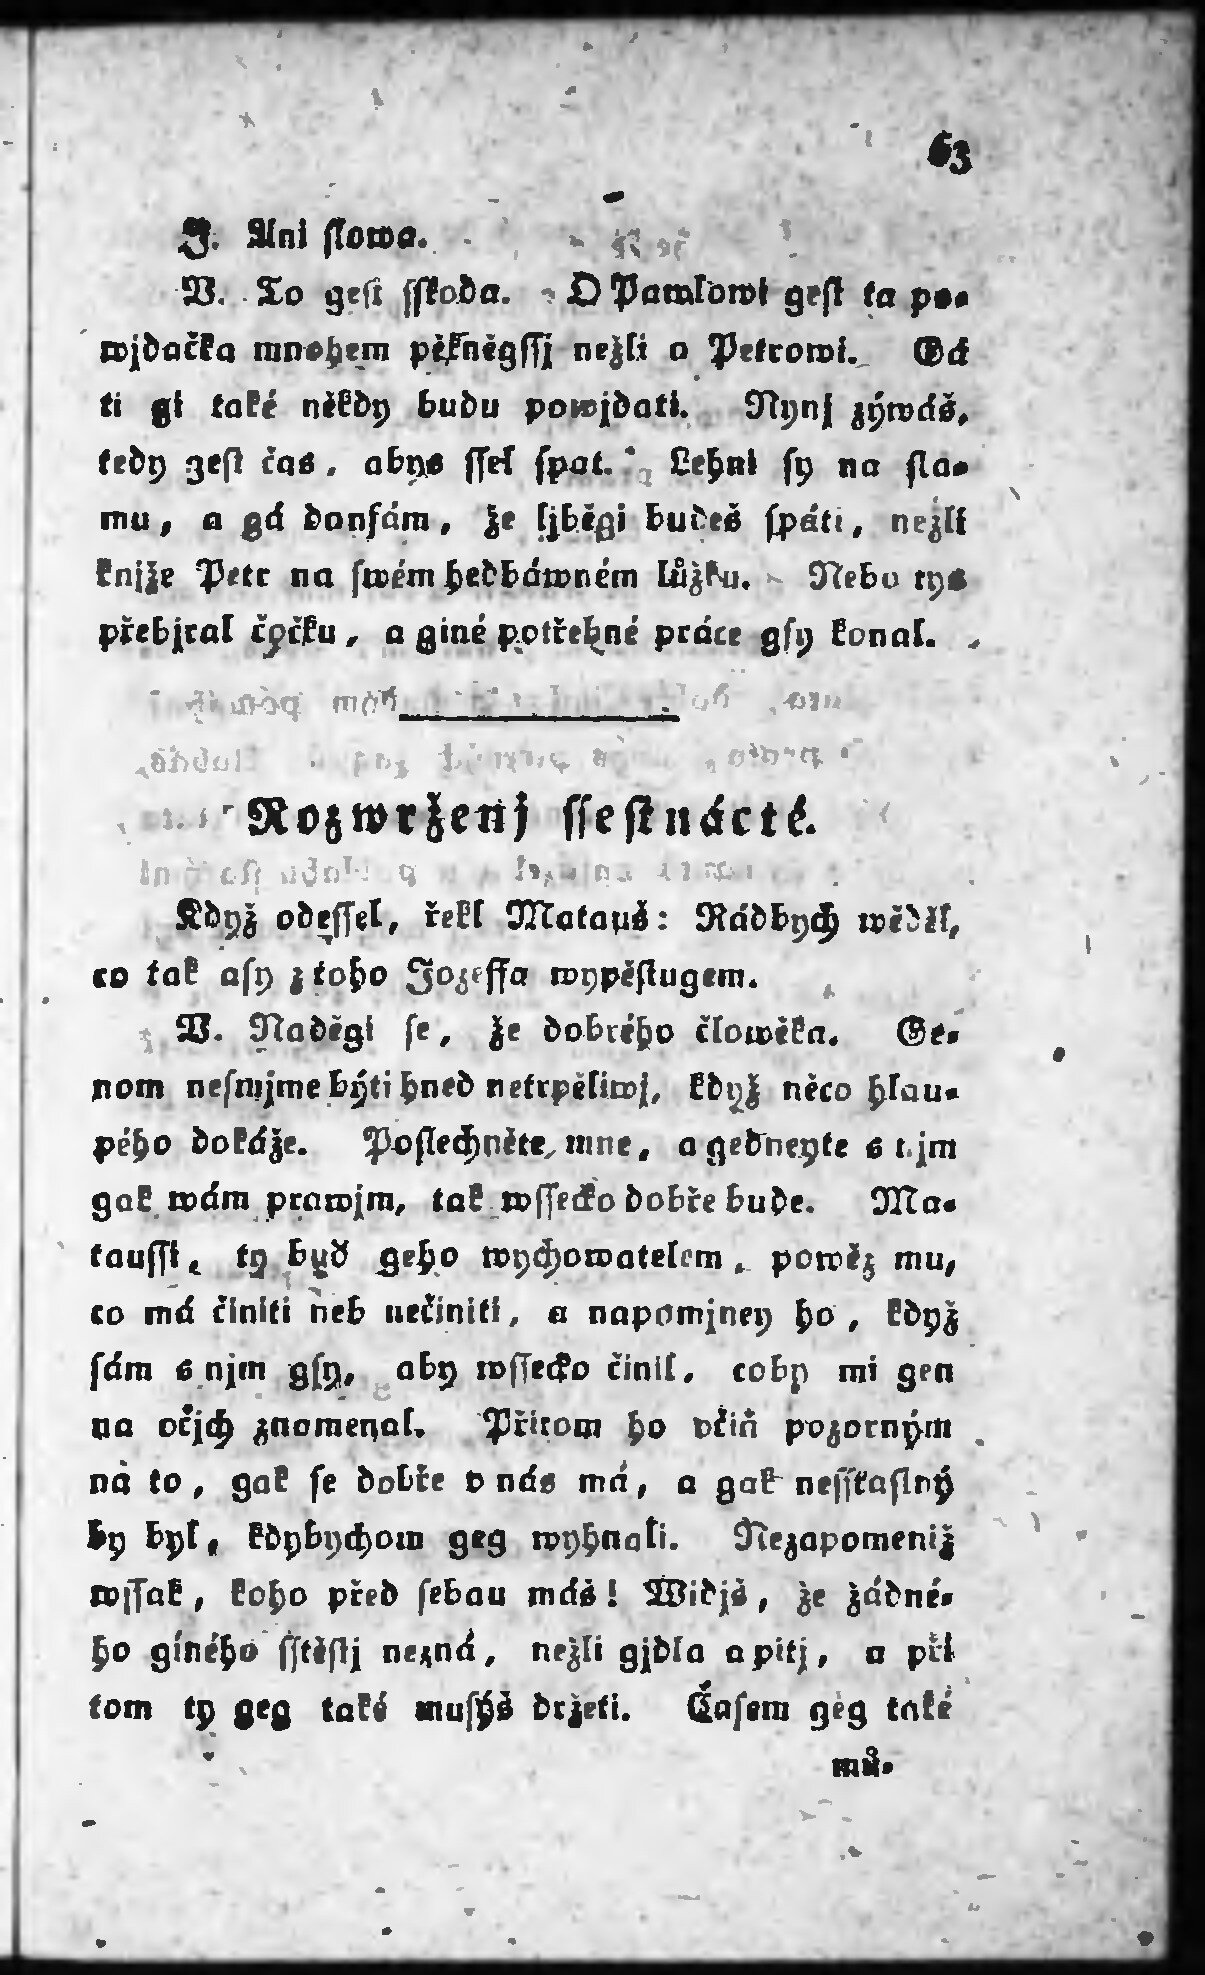 63
J. Ani slowa.
W. To gest sskoda. O Pawlowi gest ta po-
wjdačka mnohem pěkněgssj nežli o Petrowi. Gá
ti gi také někdy budu powjdati. Nynj zýwáš,
tedy gest čas, abys ssel spat. Lehni sy na sla-
mu, a gá daufám, že ljběgi budeš spáti, nežli
knjže Petr na swém hedbáwném lůžku. Nebo tys
přebjral čočku, a giné potřebné práce gsy konal.
Rozwrženj ssestnácté.
Když odessel, řekl Matauš: Rádbych wěděl,
co tak asy z toho Jozeffa wypěstugem.
W. Naděgi se, že dobrého člowěka. Ge-
nom nesmjme býti hned netrpěliwj, když něco hlau-
pého dokáže. Poslechněte mne, a gedneyte s tjm
gak wám prawjm, tak wssecko dobře bude. Ma-
taussi, ty buď geho wychowatelem, powěz mu,
co má činiti neb nečiniti, a napomjney ho, když
sám s njm gsy, aby wssecko činil, coby mi gen
na očjch znamenal. Přitom ho včiň pozorným
na to, gak se dobře v nás má, a gak nessťastný
by byl, kdybychom geg wyhnali. Nezapomeniž
wssak, koho před sebau máš! Widjš, že žádné-
ho giného sstěstj nezná, nežli gjdla a pitj, a při
tom ty geg také musýš držeti. Časem geg také
mů-